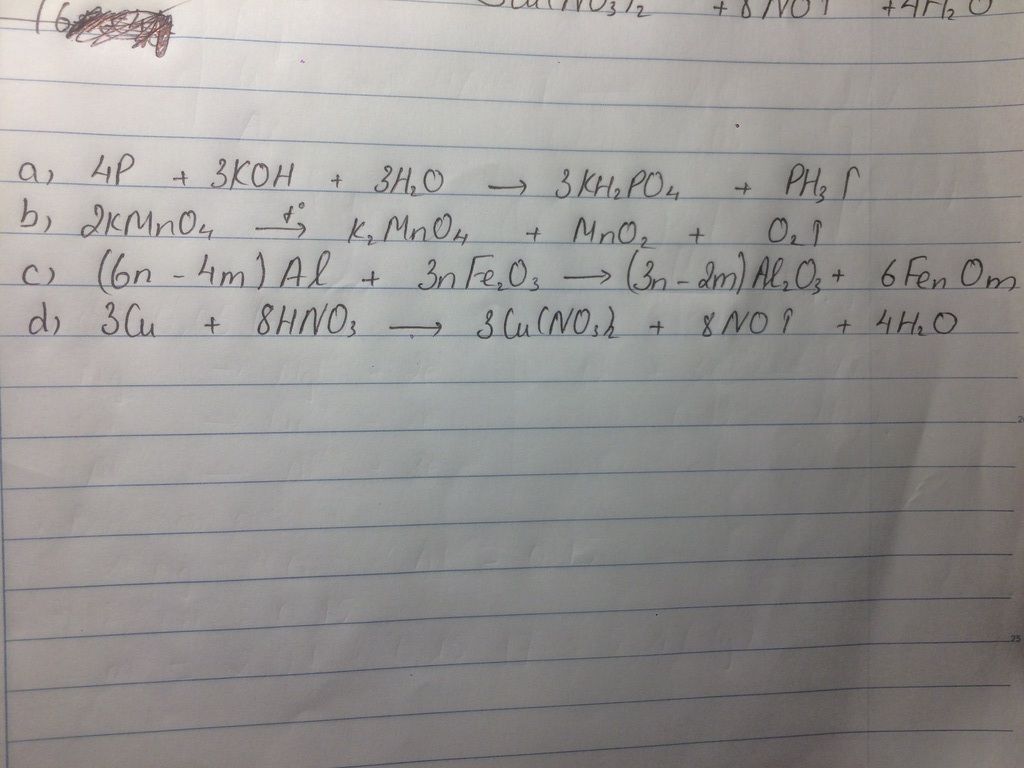 Cu(NO₃)₂ + 8NO↑ + 4H₂O
(6
a) 4P + 3KOH + 3H₂O → 3KH₂PO₄ + PH₃↑
b) 2KMnO₄ —t°→ K₂MnO₄ + MnO₂ + O₂↑
c) (6n - 4m)Al + 3nFe₂O₃ → (3n - 2m)Al₂O₃ + 6FenOm
d) 3Cu + 8HNO₃ → 3Cu(NO₃)₂ + 8NO↑ + 4H₂O
25